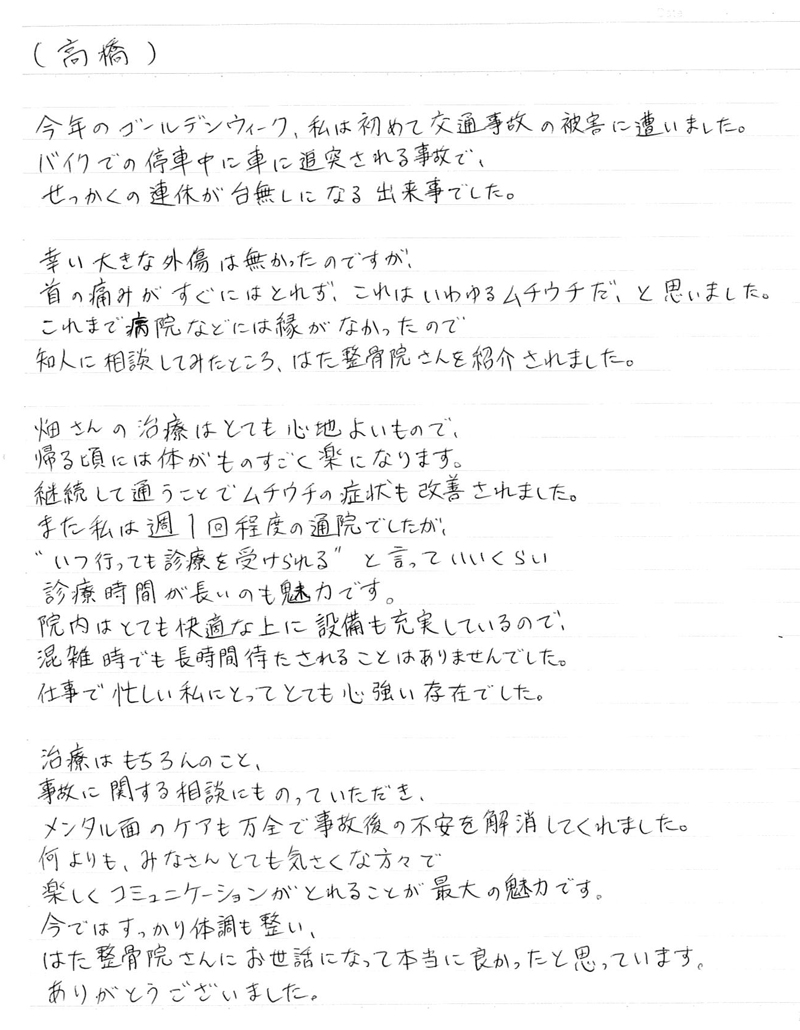 (高橋)
今年のゴールデンウィーク、私は初めて交通事故の被害に遭いました。
バイクでの停車中に車に追突される事故で、
せっかくの連休が台無しになる出来事でした。
幸い大きな外傷は無かったのですが、
首の痛みがすぐにはとれず、これはいわゆるムチウチだ、と思いました。
これまで病院などには縁がなかったので
知人に相談してみたところ、はた整骨院さんを紹介されました。
畑さんの治療はとても心地よいもので、
帰る頃には体がものすごく楽になります。
継続して通うことでムチウチの症状も改善されました。
また私は週1回程度の通院でしたが、
"いつ行っても診療を受けられる"と言っていいくらい
診療時間が長いのも魅力です。
院内はとても快適な上に設備も充実しているので、
混雑時でも長時間待たされることはありませんでした。
仕事で忙しい私にとってとても心強い存在でした。
治療はもちろんのこと、
事故に関する相談にものっていただき、
メンタル面のケアも万全で事故後の不安を解消してくれました。
何よりも、みなさんとても気さくな方々で
楽しくコミュニケーションがとれることが最大の魅力です。
今ではすっかり体調も整い、
はた整骨院さんにお世話になって本当に良かったと思っています。
ありがとうございました。